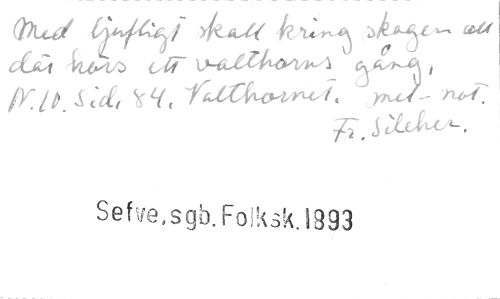 Med ljufligt skall kring skogen all
där hörs ett valthorns gång,
N.10. Sid. 84. Valthornet. mel-not.
Fr. Silcher.
Sefve, sgb. Folksk. 1893